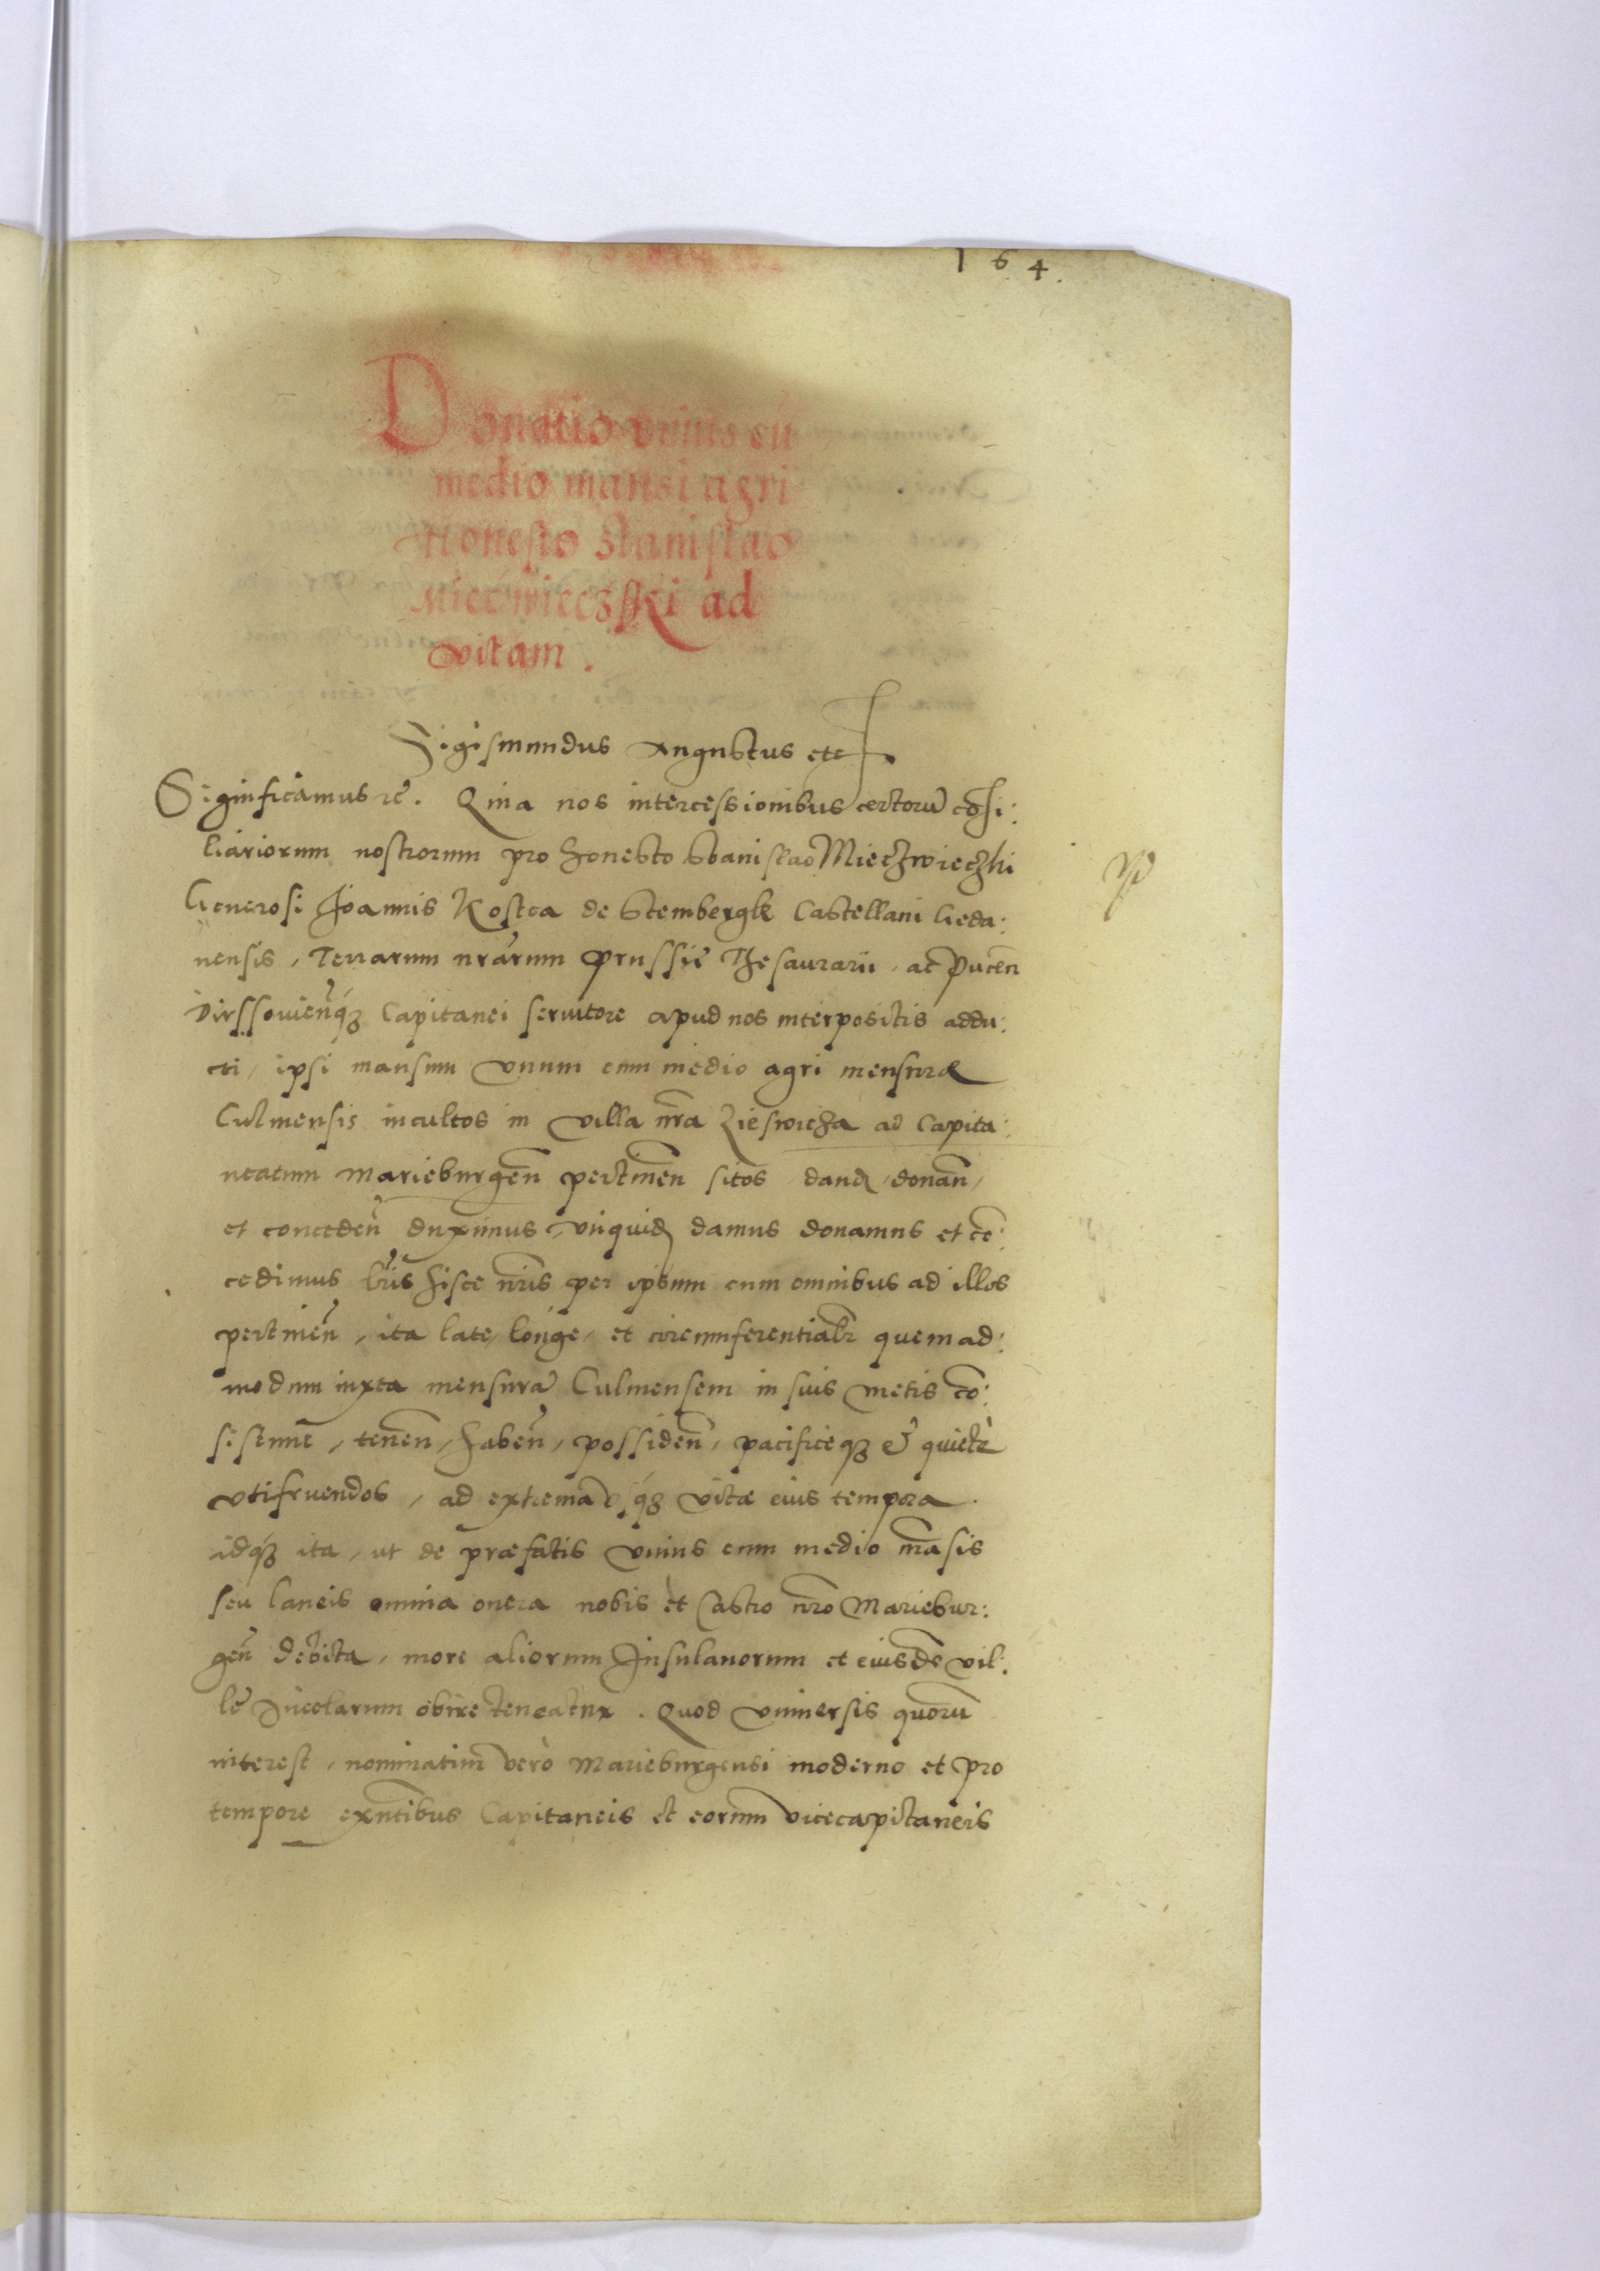 164.
Donatio unius cū
medio mansi agri
Honesto Stanislao
Miecwieczski ad
vitam.
Sigismundus Augustus etc
Significamus rc̄. Quia nos intercessionibus certorū cōsi:
liariorum nostrorum pro honesto Stanislao Mieczwieczki
Generosi Joannis Kostca de Stembergk Castellani Geda:
nensis, Terrarum nr̄arum Prussie Thesaurarii, ac Pucen̄
Dirssovien̄qꝫ Capitanei servitore apud nos interpositis addu:
cti, ipsi mansum unum cum medio agri mensuræ
Culmensis incultos in villa nr̄a Zieswicza ad Capita:
neatum Marieburgen̄ pertinen̄ sitos dand, donan̄,
et conceden̄ duximus, uti quid damus donamus et cō:
cedimus lr̄is hisce nr̄is per ipsum cum omnibus ad illos
pertinen̄, ita late, longe, et circumferentialr̄ quemad:
modum iuxta mensurā Culmensem in suis metis cō:
sistunt, tenen̄, haben̄, possiden̄, pacificeqꝫ & quietè
utifruendos, ad extremaqꝫ vitæ eius tempora.
idqꝫ ita, ut de præfatis unius cum medio māsis
seu laneis omnia onera nobis et Castro nr̄o Mariebur:
gen̄ debita, more aliorum Insulanorum et eiusdē vil:
lę Incolarum obire teneatur. Quod universis quorū
interest, nominatim verò Marieburgensi moderno et pro
tempore exn̄tibus Capitaneis et eorum vicecapitaneis